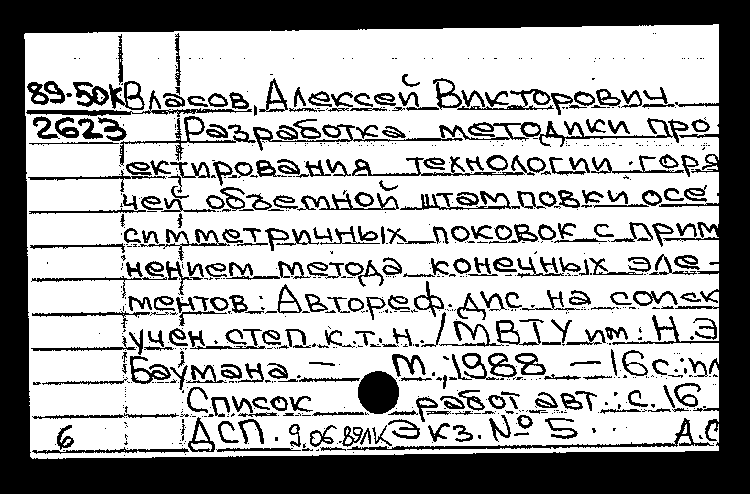 89-50к Власов, Алексей Викторович.
2623 Разработка методики про-
ектирования технологии горя
чей объемной штамповки осе-
симметричных поковок с прим
нением метода конечных эле-
ментов: Автореф. дис. на соиск
учен. степ. к.т.н. / МВТУ им. Н.Э
Баумана. — М., 1988. — 16 с.: ил
Список работ авт.: с. 16
6 ДСП. 9.06.89ЛК Экз. № 5.. А.С